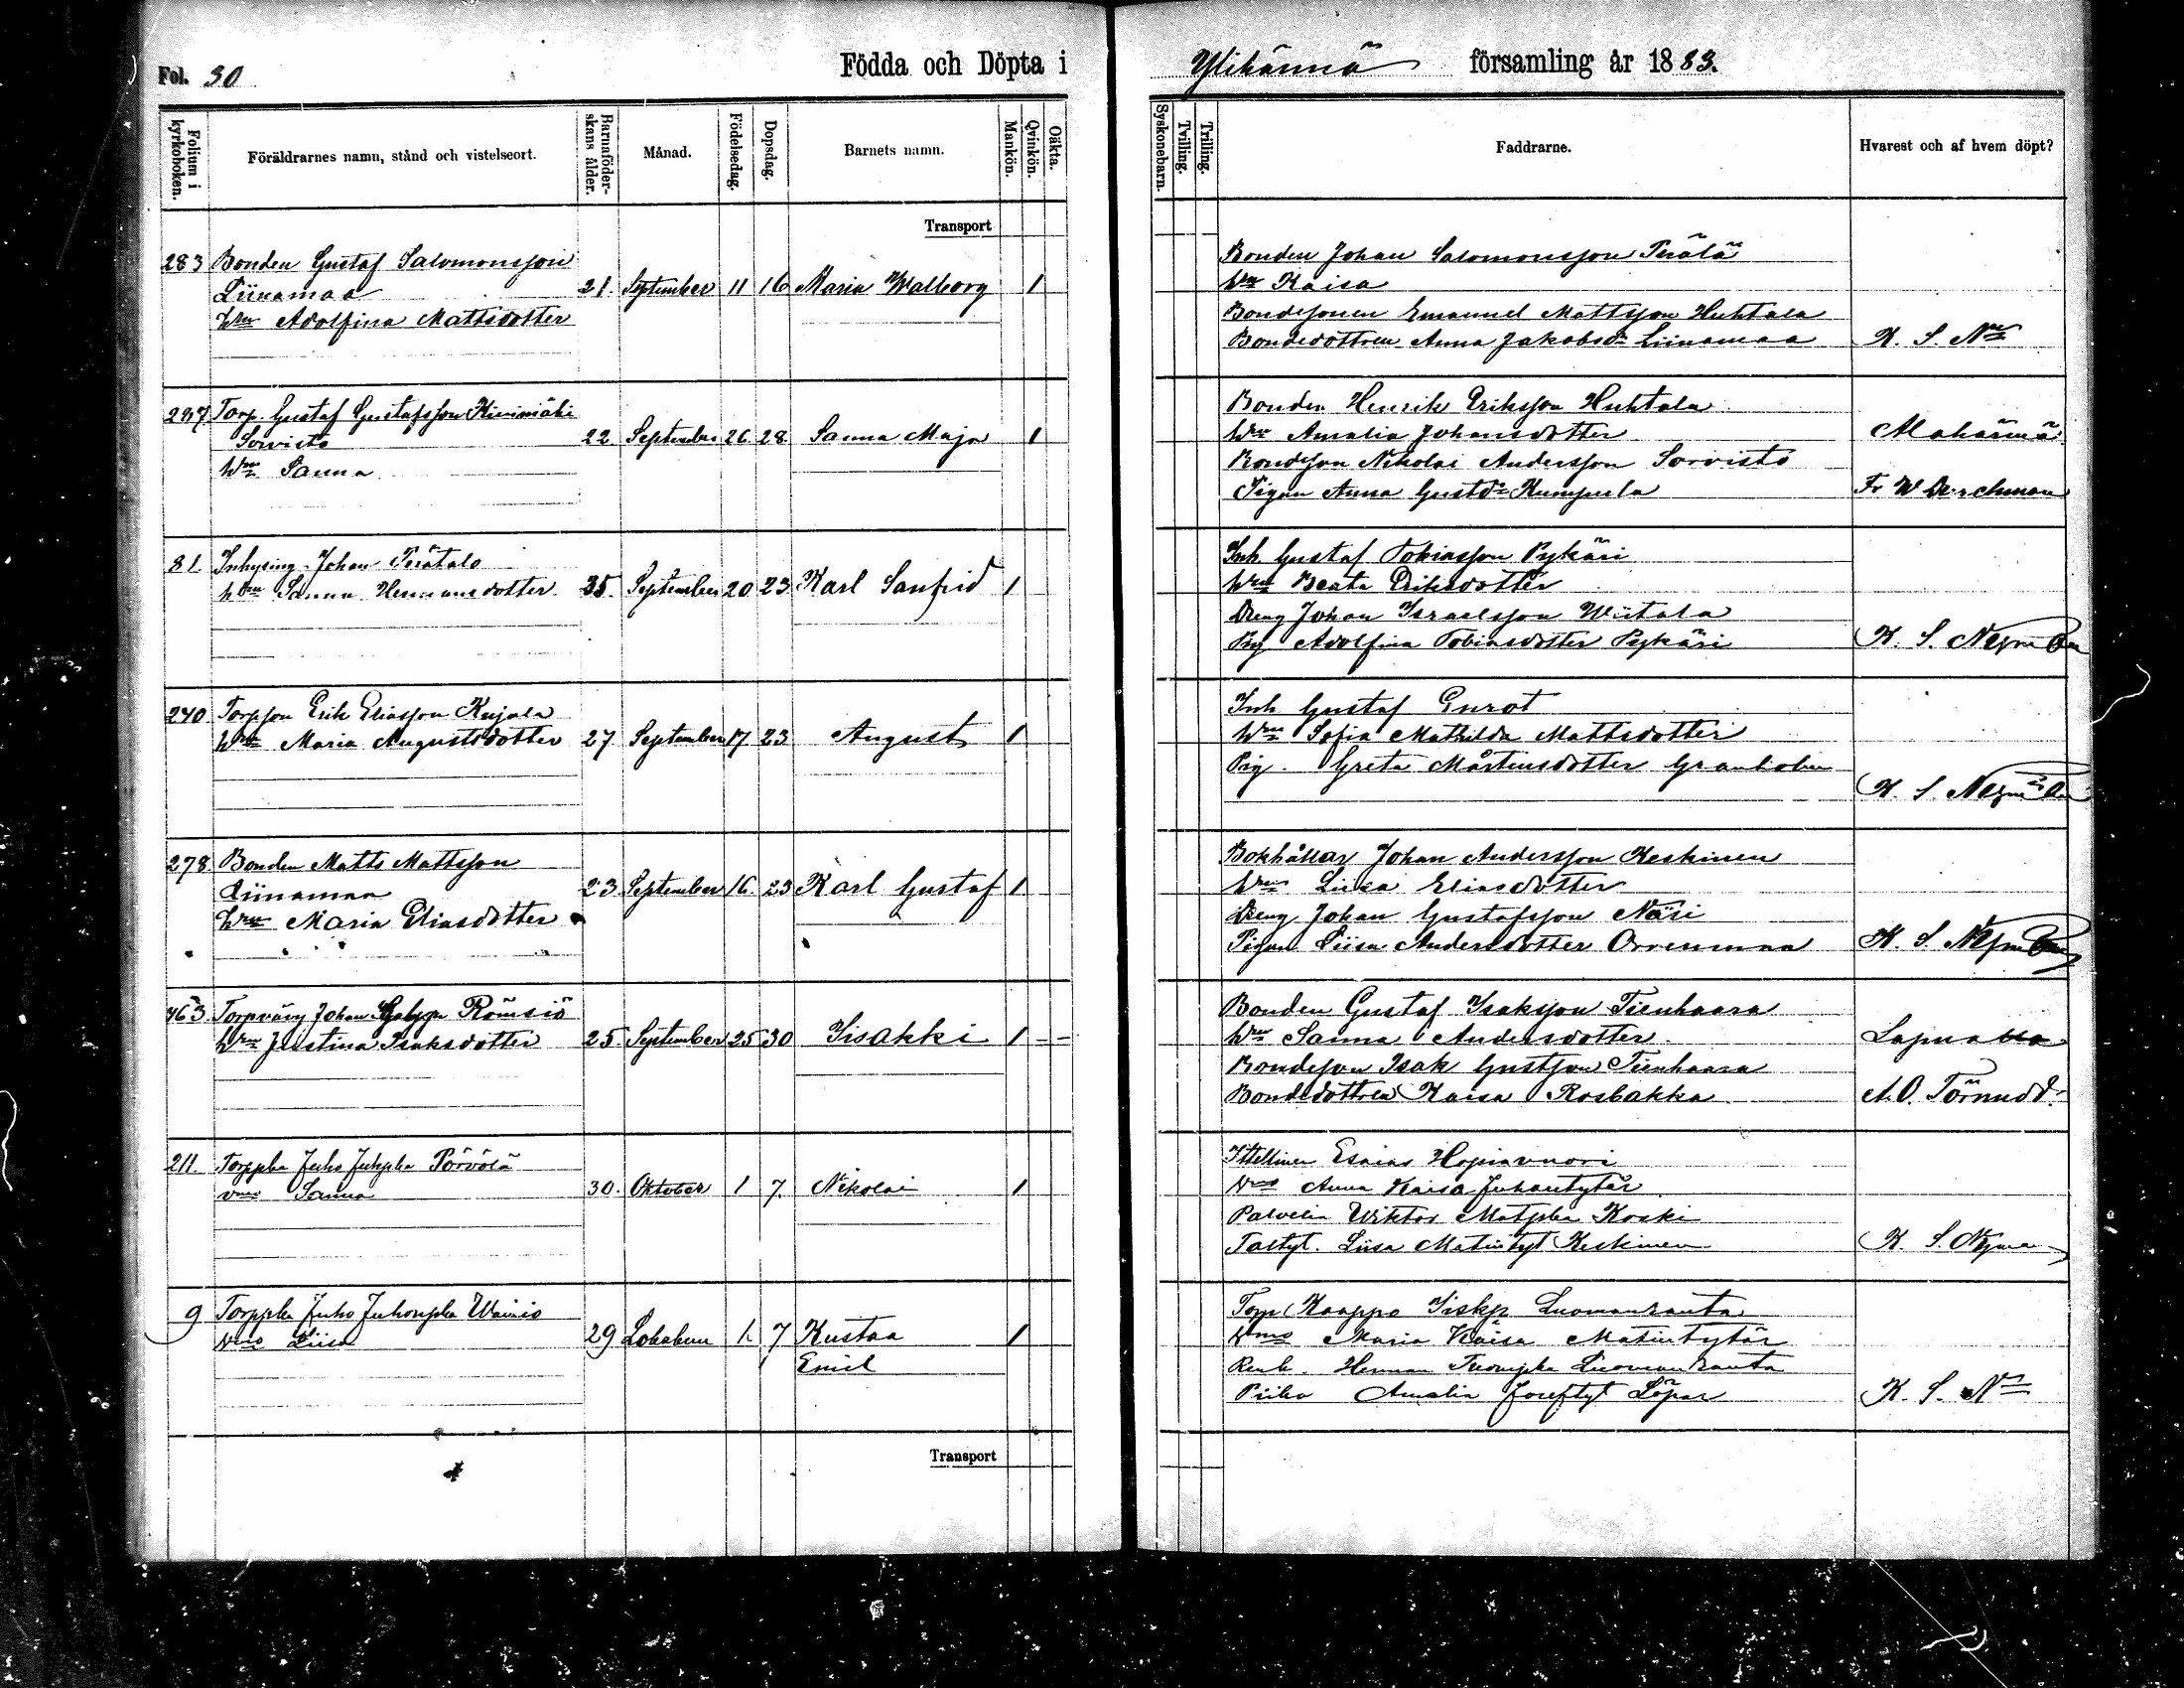 Fol. 30
Födda och Döpta i
Ylihärmä församling år 1883.
Folium i kyrkoboken.
Föräldrarnes namn, stånd och vistelseort.
Barnaföderskans ålder.
Månad.
Födelsedag.
Dopsdag.
Barnets namn.
Mankön.
Qvinkön.
Oäkta.
Syskonebarn.
Tvilling.
Trilling.
Faddrarne.
Hvarest och af hvem döpt?
Transport
283 Bonden Gustaf Salomonsson
Liinamaa 21. September 11 16 Maria Walborg 1
Hru Adolfina Mattsdotter
Bonden Johan Salomonsson Perälä
Hru Kaisa
Bondesonen Emanuel Mattsson Huhtala
Bondedottren Anna Jakobsdr Liinamaa K. S. Nn
Torp. Gustaf Gustafsson Kivimäki
Sorvisto 22 September 26 28 Sanna Maja 1
Hru Sanna
Bonden Henrik Eriksson Huhtala
Hru Amalia Johansdotter Alahärmä
Bondson Nikolai Andersson Sorvisto
Pigan Anna Gustdr Kumpula Fr W Durchman
81. Inhysing Johan Perätalo
hru Sanna Hermansdotter 35. September 20 23 Karl Sanfrid 1
Inh Gustaf Tobiasson Pykäri
Hru Beata Eriksdotter
Dreng Johan Israelsson Wiitala
Pig Adolfina Tobiasdotter Pykäri K. S. Nyman
240. Torpson Erik Eliasson Kujala
Hru Maria Augustsdotter 27 September 17 23 August 1
Inh Gustaf Gurot
Hru Sofia Mathilda Mattsdotter
Pig. Greta Mårtensdotter Granholm
K. S. Nyman
278. Bonden Matts Mattsson
Liinamaa 23 September 16. 23 Karl Gustaf 1
Hru Maria Eliasdotter
Bokhållar Johan Andersson Keskinen
hru Liisa Eliasdotter
Dreng Johan Gustafsson Näsi
Pigan Liisa Andersdotter Orrenmaa K. S. Nyman
463. Torpväv Johan Römsiö
Hru Justina Isaksdotter 25. September 25 30 Iisakki 1 - -
Bonden Gustaf Isaksson Tienhaara
Hru Sanna Andersdotter Lapua
Bondeson Isak Gustsson Tienhaara
Bondedottren Kaisa Rosbakka A. O. Törnudd.
211. Torppa Juho Juhpka Pörvölä
vmo Sanna 30. Oktober 1 7. Nikolai 1
Itellinen Esaias Hopiavuori
Vmo Anna Kaisa Juhontytär
Palvelia Wiktor Matpka Koski
Taltyt. Liisa Matintyt Keskinen K. S. Nyman
9 Torppa Juho Juhonpka Wainio
vmo Liisa 29 Lokakuu 1. 7 Kustaa 1
Emil
Torp Kaappo Iiskp Luomanranta
Vmo Maria Kaisa Matintytär
Renk. Herman Tuompka Luomanranta
Piika Amalia Joseftyt Löpar K. S. Nn
Transport